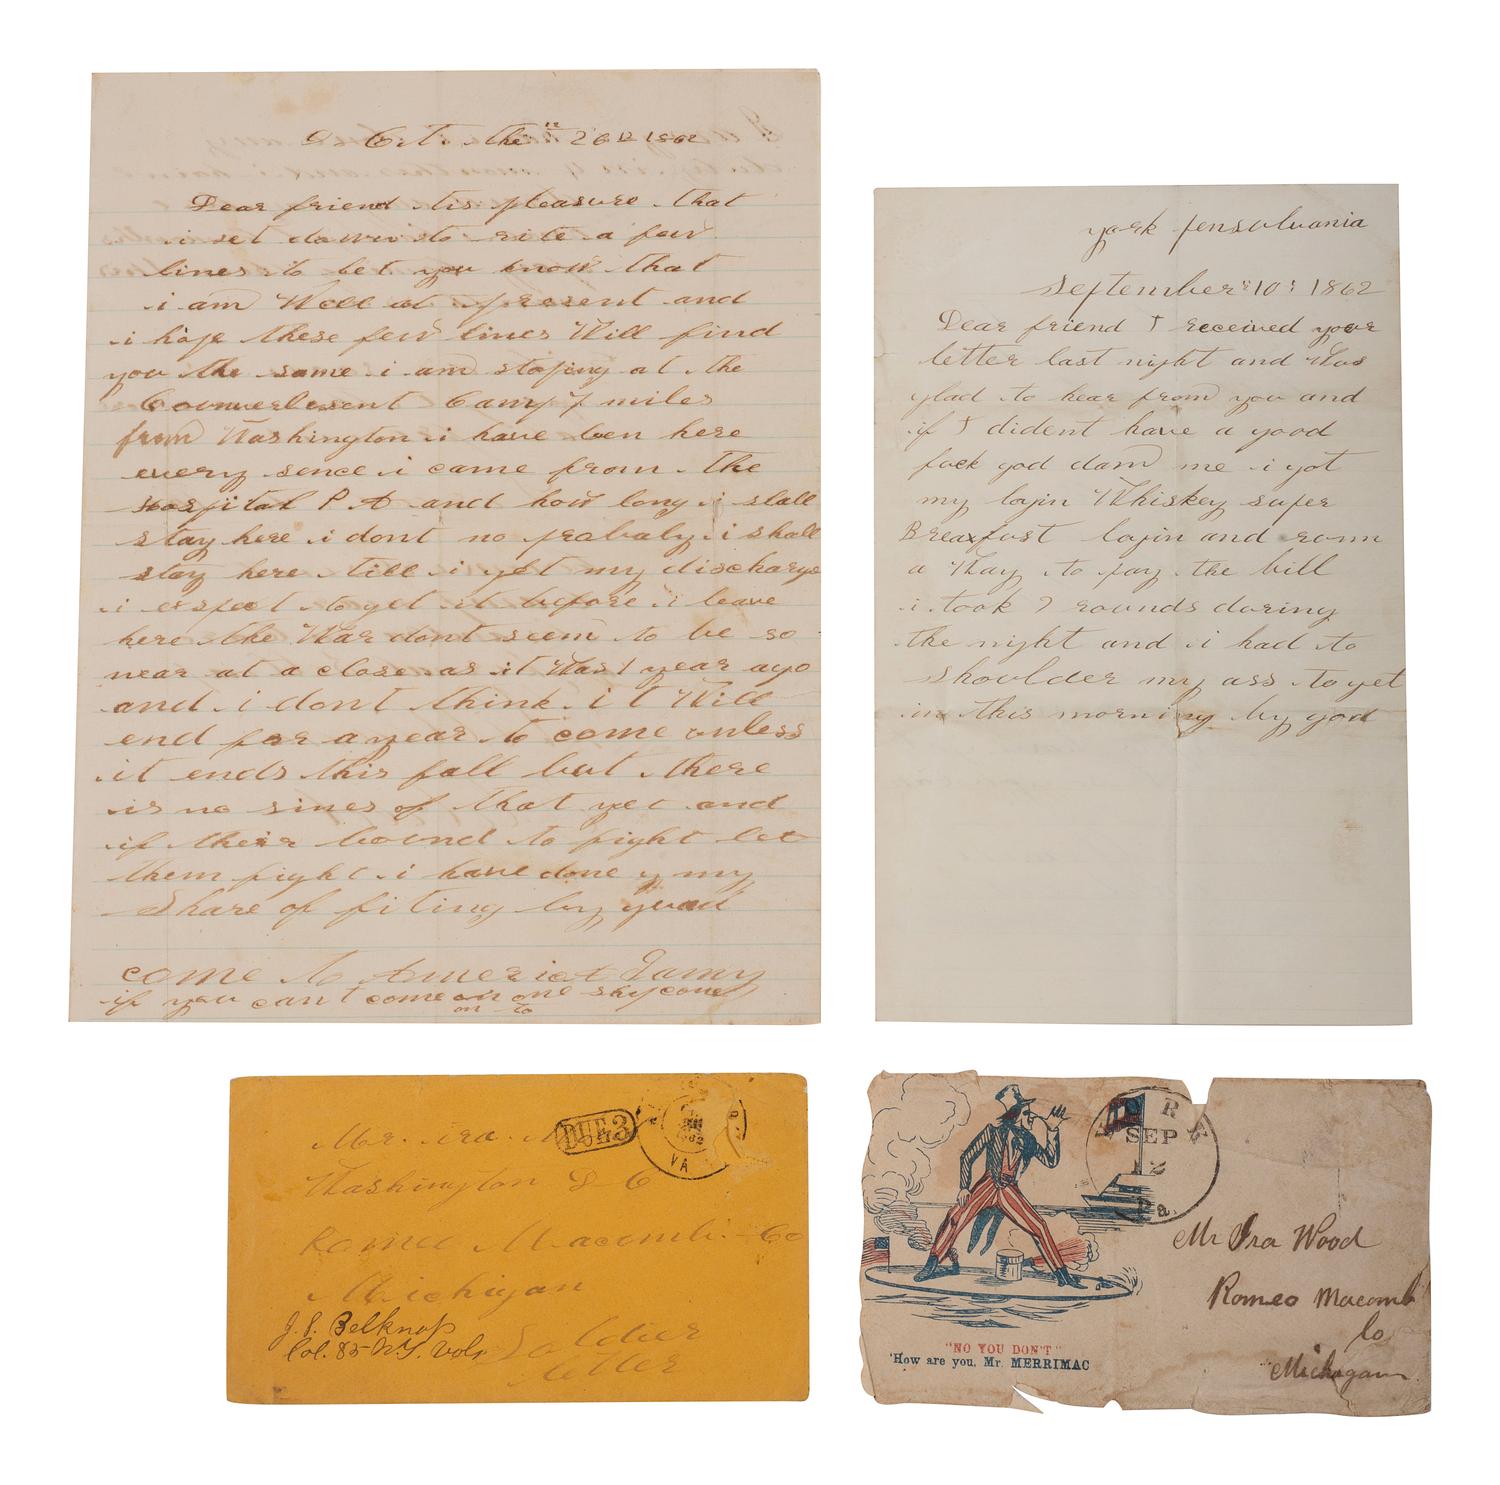 Oct. the 26 1862
Dear friend tis pleasure that
i set down to rite a few
lines to let you know that
i am Well at present and
i hope these few lines Will find
you the same i am stoping at the
Camp 7 miles
from Washington i have ben here
every sence i came from the
hospital P A and how long i stall
stay here i dont no probaly i shall
stay here till i get my discharge
i expect to get it before i leave
here the War dont seem to be so
near at a close as it Was 1 year ago
and i dont think it Will
end for a year to come unless
it ends this fall but there
is no sines of that yet and
if their bound to fight let
them fight i have done my
share of fiting by
come to America
if you cant come on one
on to
york pensulvania
September 10 1862
Dear friend I received your
letter last night and Was
glad to hear from you and
if I dident have a good
fuck god dam me i got
my login Whiskey super
Breaxfast login and
a Way to pay the bill
i took 7 rounds during
the night and i had to
shoulder my ass to get
in this morning by god
DUE 3
1862
VA
Mr. ira
Washington D C
Romeo Macomb Co
Michigan
J. S. Belknap
Col. 85 N.Y. Vols
Soldier
letter
SEP
12
Pa.
Mr Ira Wood
Romeo Macomb
Co
Michagan
"NO YOU DON'T"
'How are you, Mr. MERRIMAC